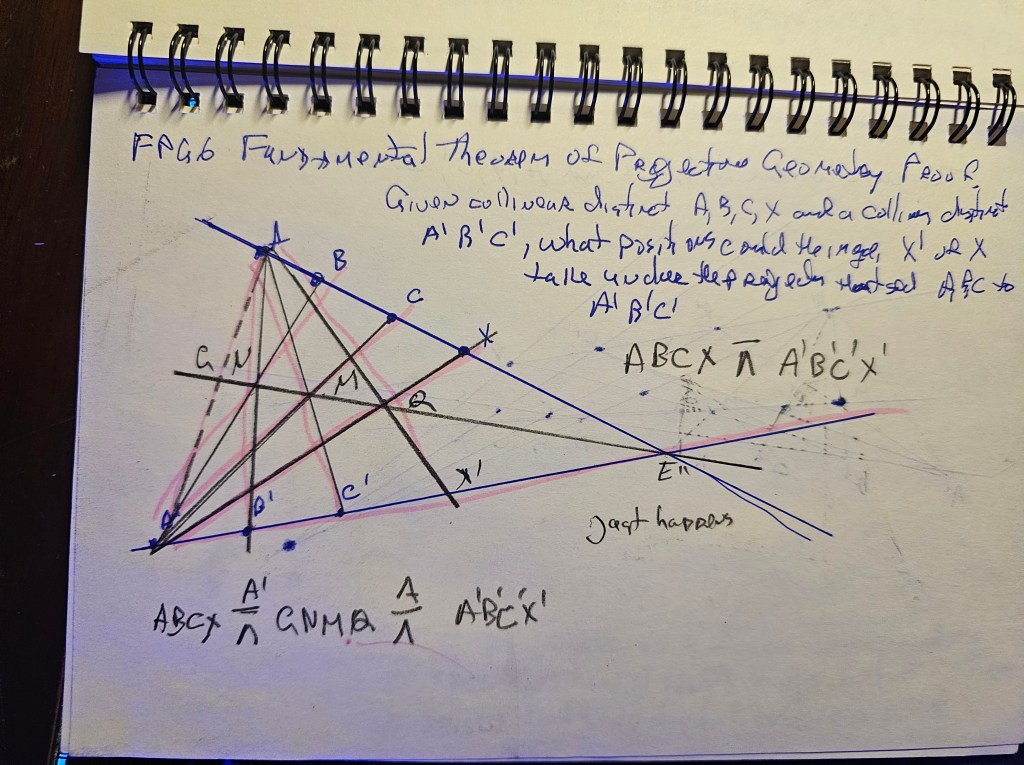 FPG6 Fundamental Theorem of Projective Geometry Proof.
Given collinear distinct A, B, C, X and a collinear distinct
A' B' C', what positions could the image, X' of X
take under the projectivity that sends A, B, C to
A' B' C'
A
B
C
X
ABCX ⊼ A'B'C'X'
G N M Q
E''
X'
A' B' C'
just happens
ABCX A'/⊼ GNMQ A/⊼ A'B'C'X'